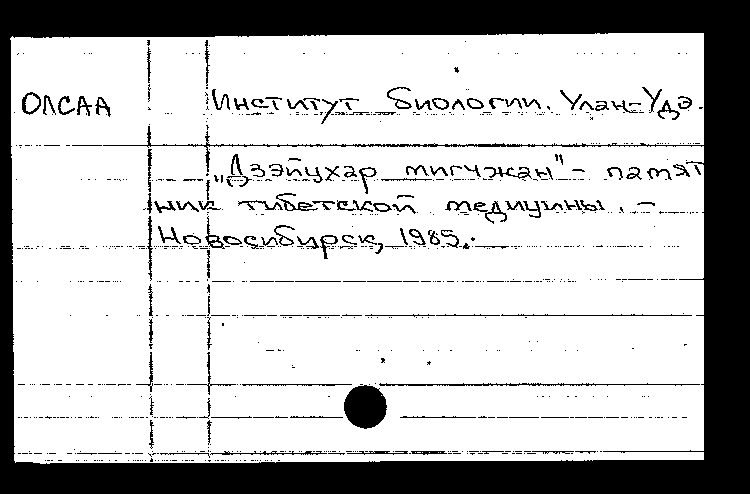 ОЛСАА Институт биологии. Улан-Удэ.
„Дзэйцхар мигчжан" - памят
ник тибетской медицины. -
Новосибирск, 1985.